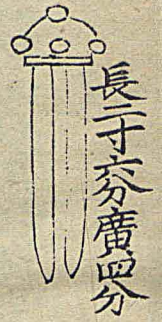 長二寸六分廣四分